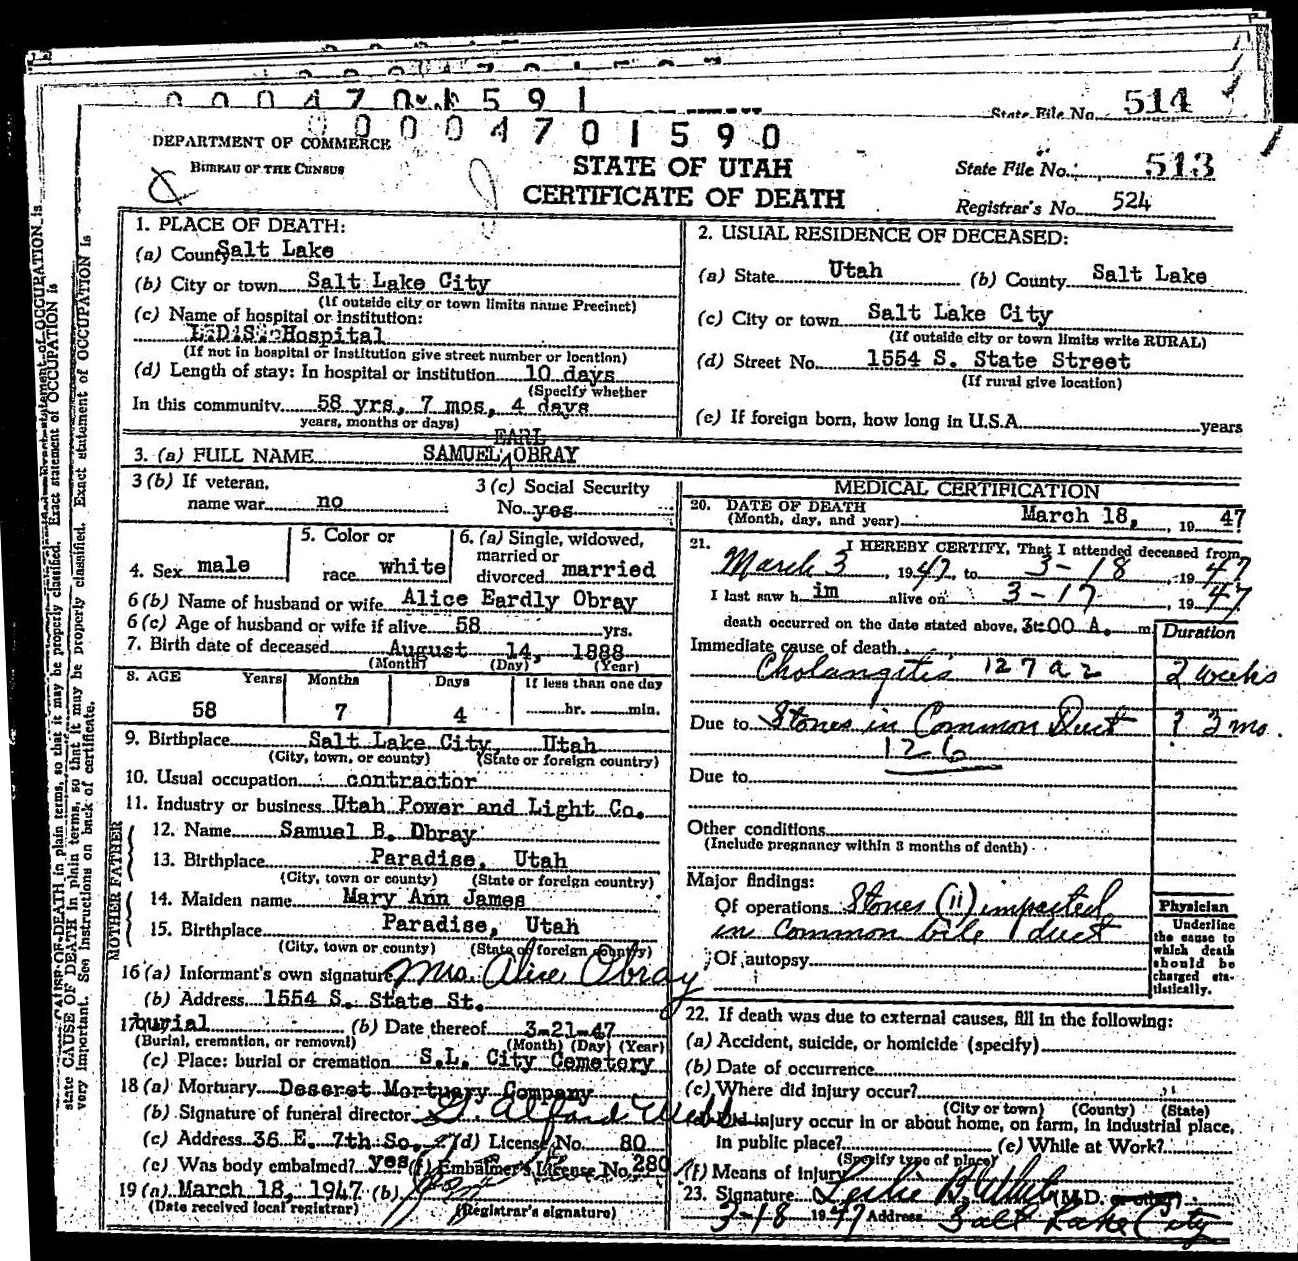 0 0 0 4 7 0 1 5 9 1
State File No. 514
0 0 0 4 7 0 1 5 9 0
DEPARTMENT OF COMMERCE
BUREAU OF THE CENSUS
STATE OF UTAH
CERTIFICATE OF DEATH
State File No. 513
Registrar's No. 524
1. PLACE OF DEATH:
(a) County Salt Lake
(b) City or town Salt Lake City
(If outside city or town limits name Precinct)
(c) Name of hospital or institution:
L.D.S. Hospital
(If not in hospital or institution give street number or location)
(d) Length of stay: In hospital or institution 10 days
(Specify whether
In this community 58 yrs, 7 mos, 4 days
years, months or days)
2. USUAL RESIDENCE OF DECEASED:
(a) State Utah (b) County Salt Lake
(c) City or town Salt Lake City
(If outside city or town limits write RURAL)
(d) Street No. 1554 S. State Street
(If rural give location)
(e) If foreign born, how long in U.S.A. years
EARL
3. (a) FULL NAME SAMUEL OBRAY
3 (b) If veteran, name war no
3 (c) Social Security No. yes
4. Sex male
5. Color or race white
6. (a) Single, widowed, married or divorced married
6 (b) Name of husband or wife Alice Eardly Obray
6 (c) Age of husband or wife if alive 58 yrs.
7. Birth date of deceased August 14, 1888
(Month) (Day) (Year)
8. AGE Years Months Days If less than one day
58 7 4 hr. min.
9. Birthplace Salt Lake City, Utah
(City, town, or county) (State or foreign country)
10. Usual occupation contractor
11. Industry or business Utah Power and Light Co.
FATHER
12. Name Samuel B. Obray
13. Birthplace Paradise, Utah
(City, town or county) (State or foreign country)
MOTHER
14. Maiden name Mary Ann James
15. Birthplace Paradise, Utah
(City, town or county) (State or foreign country)
16 (a) Informant's own signature Mrs. Alice Obray
(b) Address 1554 S. State St.
17 burial (b) Date thereof 3-21-47
(Burial, cremation, or removal) (Month) (Day) (Year)
(c) Place: burial or cremation S.L. City Cemetery
18 (a) Mortuary Deseret Mortuary Company
(b) Signature of funeral director
(c) Address 36 E. 7th So. (d) License No. 80
(e) Was body embalmed? yes (f) Embalmer's License No. 280
19 (a) March 18, 1947 (b)
(Date received local registrar) (Registrar's signature)
MEDICAL CERTIFICATION
20. DATE OF DEATH
(Month, day, and year) March 18, 19 47
21. I HEREBY CERTIFY, That I attended deceased from
March 3, 1947, to 3-18, 1947
I last saw him alive on 3-17, 1947
death occurred on the date stated above, 3:00 A. m
Duration
Immediate cause of death
Cholangitis 127a2 2 weeks
Due to Stones in Common Duct ? 3 mo.
126
Due to
Other conditions
(Include pregnancy within 3 months of death)
Major findings:
Of operations Stones (11) impacted
in common bile duct
Of autopsy
Physician
Underline
the cause to
which death
should be
charged sta-
tistically.
22. If death was due to external causes, fill in the following:
(a) Accident, suicide, or homicide (specify)
(b) Date of occurrence
(c) Where did injury occur?
(City or town) (County) (State)
(d) Did injury occur in or about home, on farm, in industrial place,
in public place? (e) While at Work?
(Specify type of place)
(f) Means of injury
23. Signature (M.D. or other)
3-18 1947 Address Salt Lake City
state CAUSE OF DEATH in plain terms, so that it may be properly classified. Exact statement of OCCUPATION is
very important. See instructions on back of certificate.